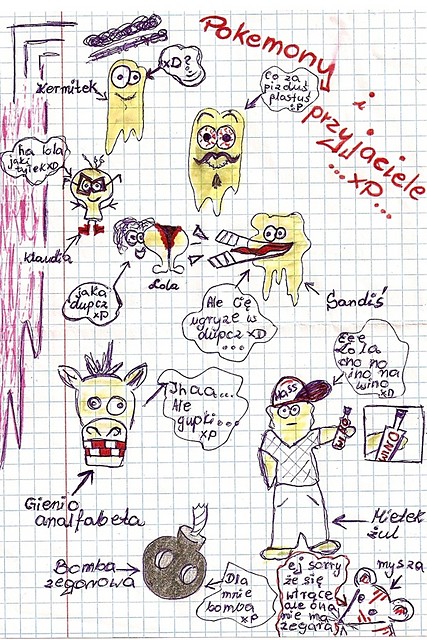 Pokemony
i
przyjaciele
...xP...
Kermitek
xD?
co za
pizduś
plastuś
:P
ha lola
jaki
tyłek xD
Klaudia
jaka
dupcz
xP
Lola
Ale Cię
ugryzę w
dupcz xD
...
Gandiś
Jhaa...
Ale
gupki...
xP
Gienio
analfabeta
Eee
Lola
cho no
ino na
wino
xD
MASS
WINO
WINO
Mietek
żul
Bomba
zegarowa
Dla
mnie
bomba
xP
ej sorry
że się
wtrącę
ale ona
nie ma
zegara
mysza